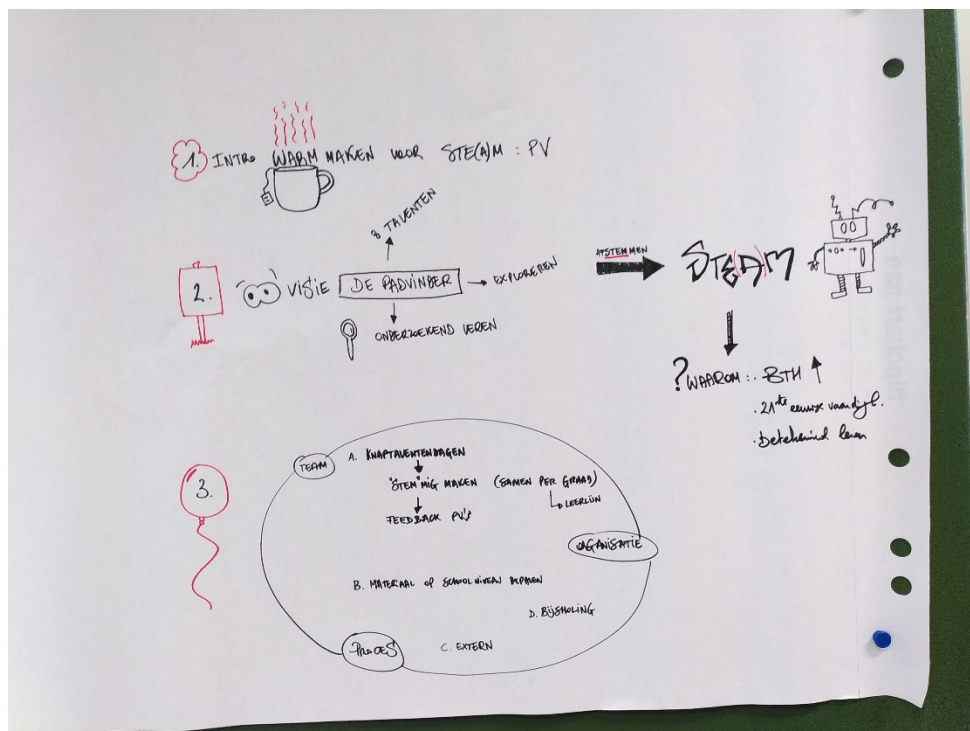 1. INTRO WARM MAKEN VOOR STE(A)M : PV
8 TALENTEN
2. VISIE DE PADVINDER → EXPLOREREN
ONDERZOEKEND LEREN
AFSTEMMEN
STE(A)M
? WAAROM : . BTH ↑
. 21ste eeuwse vaardigh.
. Betekenisvol leren
3.
TEAM
A. KNAPTALENTENDAGEN
"STEM"MIG MAKEN (SAMEN PER GRAAD)
LEERLIJN
FEEDBACK PV's
ORGANISATIE
B. MATERIAAL OP SCHOOLNIVEAU BEPALEN
D. BIJSCHOLING
C. EXTERN
PROCES